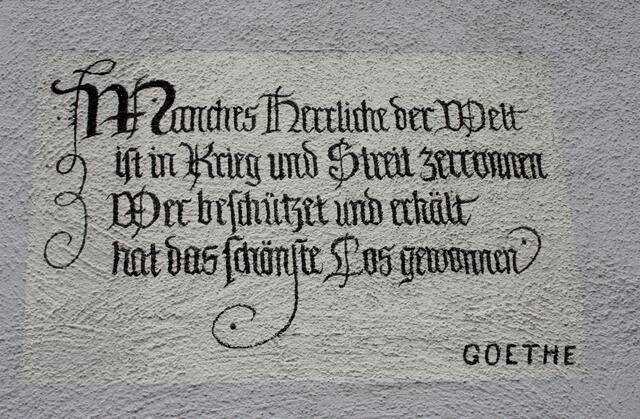 Manches Herrliche der Welt
ist in Krieg und Streit zerronnen
Wer beschützet und erhält
hat das schönste Los gewonnen
GOETHE